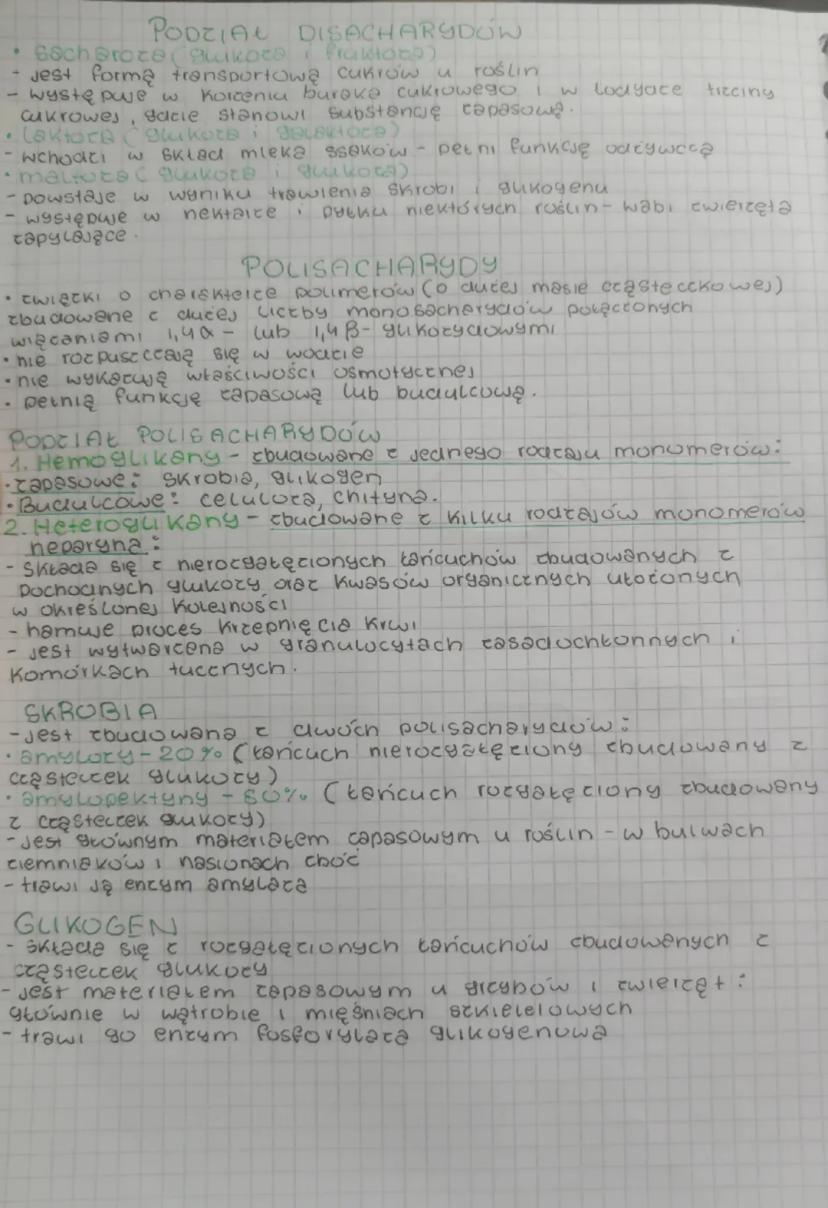 PODZIAŁ DISACHARYDÓW
• Sacharoza (glukoza i fruktoza)
- jest formą transportową cukrów u roślin
- występuje w korzeniu buraka cukrowego i w łodydze trzciny
cukrowej, gdzie stanowi substancję zapasową.
• laktoza (glukoza i galaktoza)
- wchodzi w skład mleka ssaków - pełni funkcję odżywczą
• maltoza (glukoza i glukoza)
- powstaje w wyniku trawienia skrobi i glikogenu
- występuje w nektarze i pyłku niektórych roślin - wabi zwierzęta
zapylające.
POLISACHARYDY
• związki o charakterze polimerów (o dużej masie cząsteczkowej)
zbudowane z dużej liczby monosacharydów połączonych
wiązaniami 1,4α- lub 1,4β-glikozydowymi
• nie rozpuszczają się w wodzie
• nie wykazują właściwości osmotycznej
• pełnią funkcję zapasową lub budulcową.
PODZIAŁ POLISACHARYDÓW
1. Hemoglikany - zbudowane z jednego rodzaju monomerów:
• zapasowe: skrobia, glikogen
• Budulcowe: celuloza, chityna.
2. Heteroglikany - zbudowane z kilku rodzajów monomerów
heparyna:
- składa się z nierozgałęzionych łańcuchów zbudowanych z
pochodnych glukozy oraz kwasów organicznych ułożonych
w określonej kolejności
- hamuje proces krzepnięcia krwi
- jest wytwarzana w granulocytach zasadochłonnych i
komórkach tucznych.
SKROBIA
- jest zbudowana z dwóch polisacharydów:
• amylozy - 20% (łańcuch nierozgałęziony zbudowany z
cząsteczek glukozy)
• amylopektyny - 80% (łańcuch rozgałęziony zbudowany
z cząsteczek glukozy)
- jest głównym materiałem zapasowym u roślin - w bulwach
ziemniaków i nasionach zbóż
- trawi ją enzym amylaza
GLIKOGEN
- składa się z rozgałęzionych łańcuchów zbudowanych z
cząsteczek glukozy
- jest materiałem zapasowym u grzybów i zwierząt:
głównie w wątrobie i mięśniach szkieletowych
- trawi go enzym fosforylaza glikogenowa